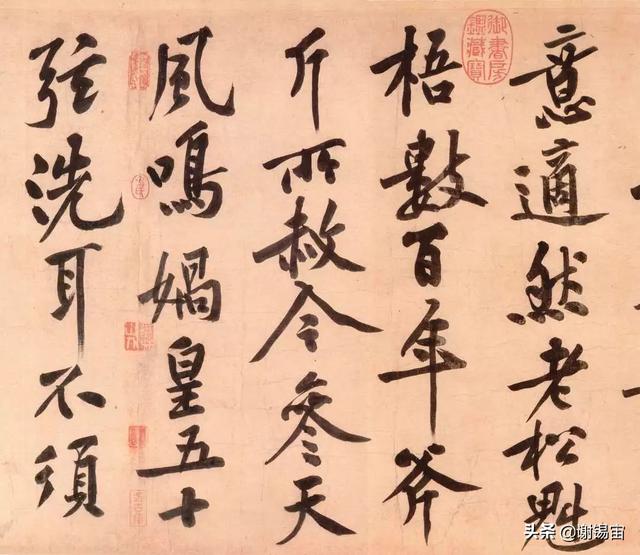 意適然老松魁
梧數百年斧
斤所赦今參天
風鳴媧皇五十
弦洗耳不須
御書房
鑑藏寶
头条 @谢锡宙